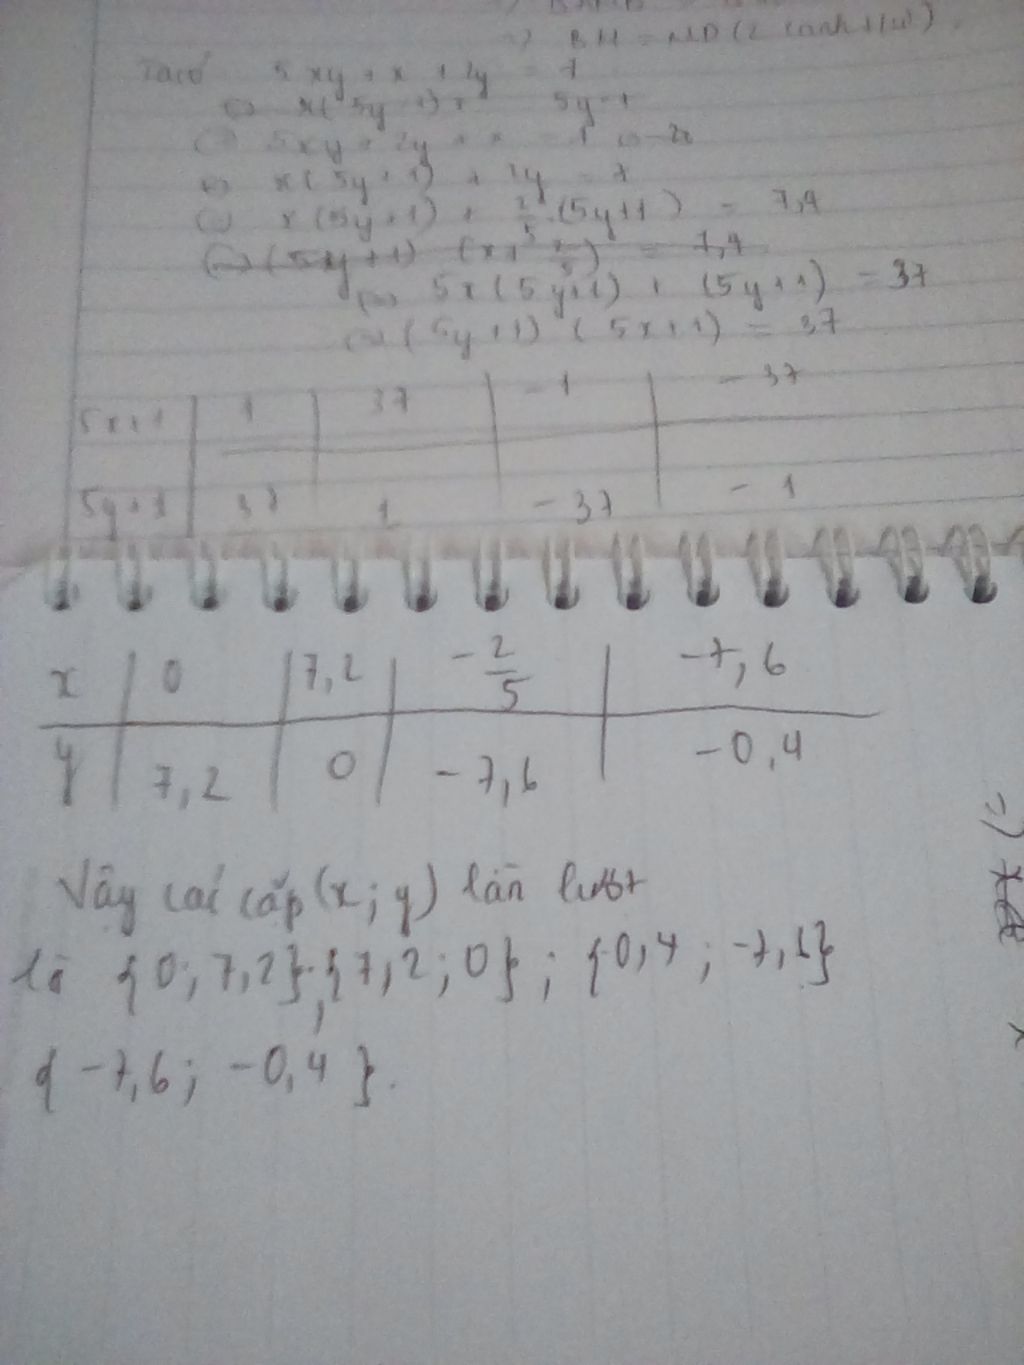 =) BH = MD (2 cạnh t/ư).
Ta có 5xy + x + 2y = 7
<=> x(5y+1) + 5y+1
<=> 5xy + 2y + x = 7
<=> x(5y+1) + 2y = 7
<=> x(5y+1) + 2/5 (5y+1) = 7,4
<=> (5y+1) = 7,4
<=> 5x(5y+1) + (5y+1) = 37
<=> (5y+1) (5x+1) = 37
5x+1 | 1 | 37 | -1 | -37
5y+1 | 37 | 1 | -37 | -1
x | 0 | 7,2 | -2/5 | -7,6
y | 7,2 | 0 | -7,6 | -0,4
=)
Vậy các cặp (x; y) lần lượt
là {0; 7,2}; {7,2; 0}; {0,4; -7,6}
{-7,6; -0,4}.